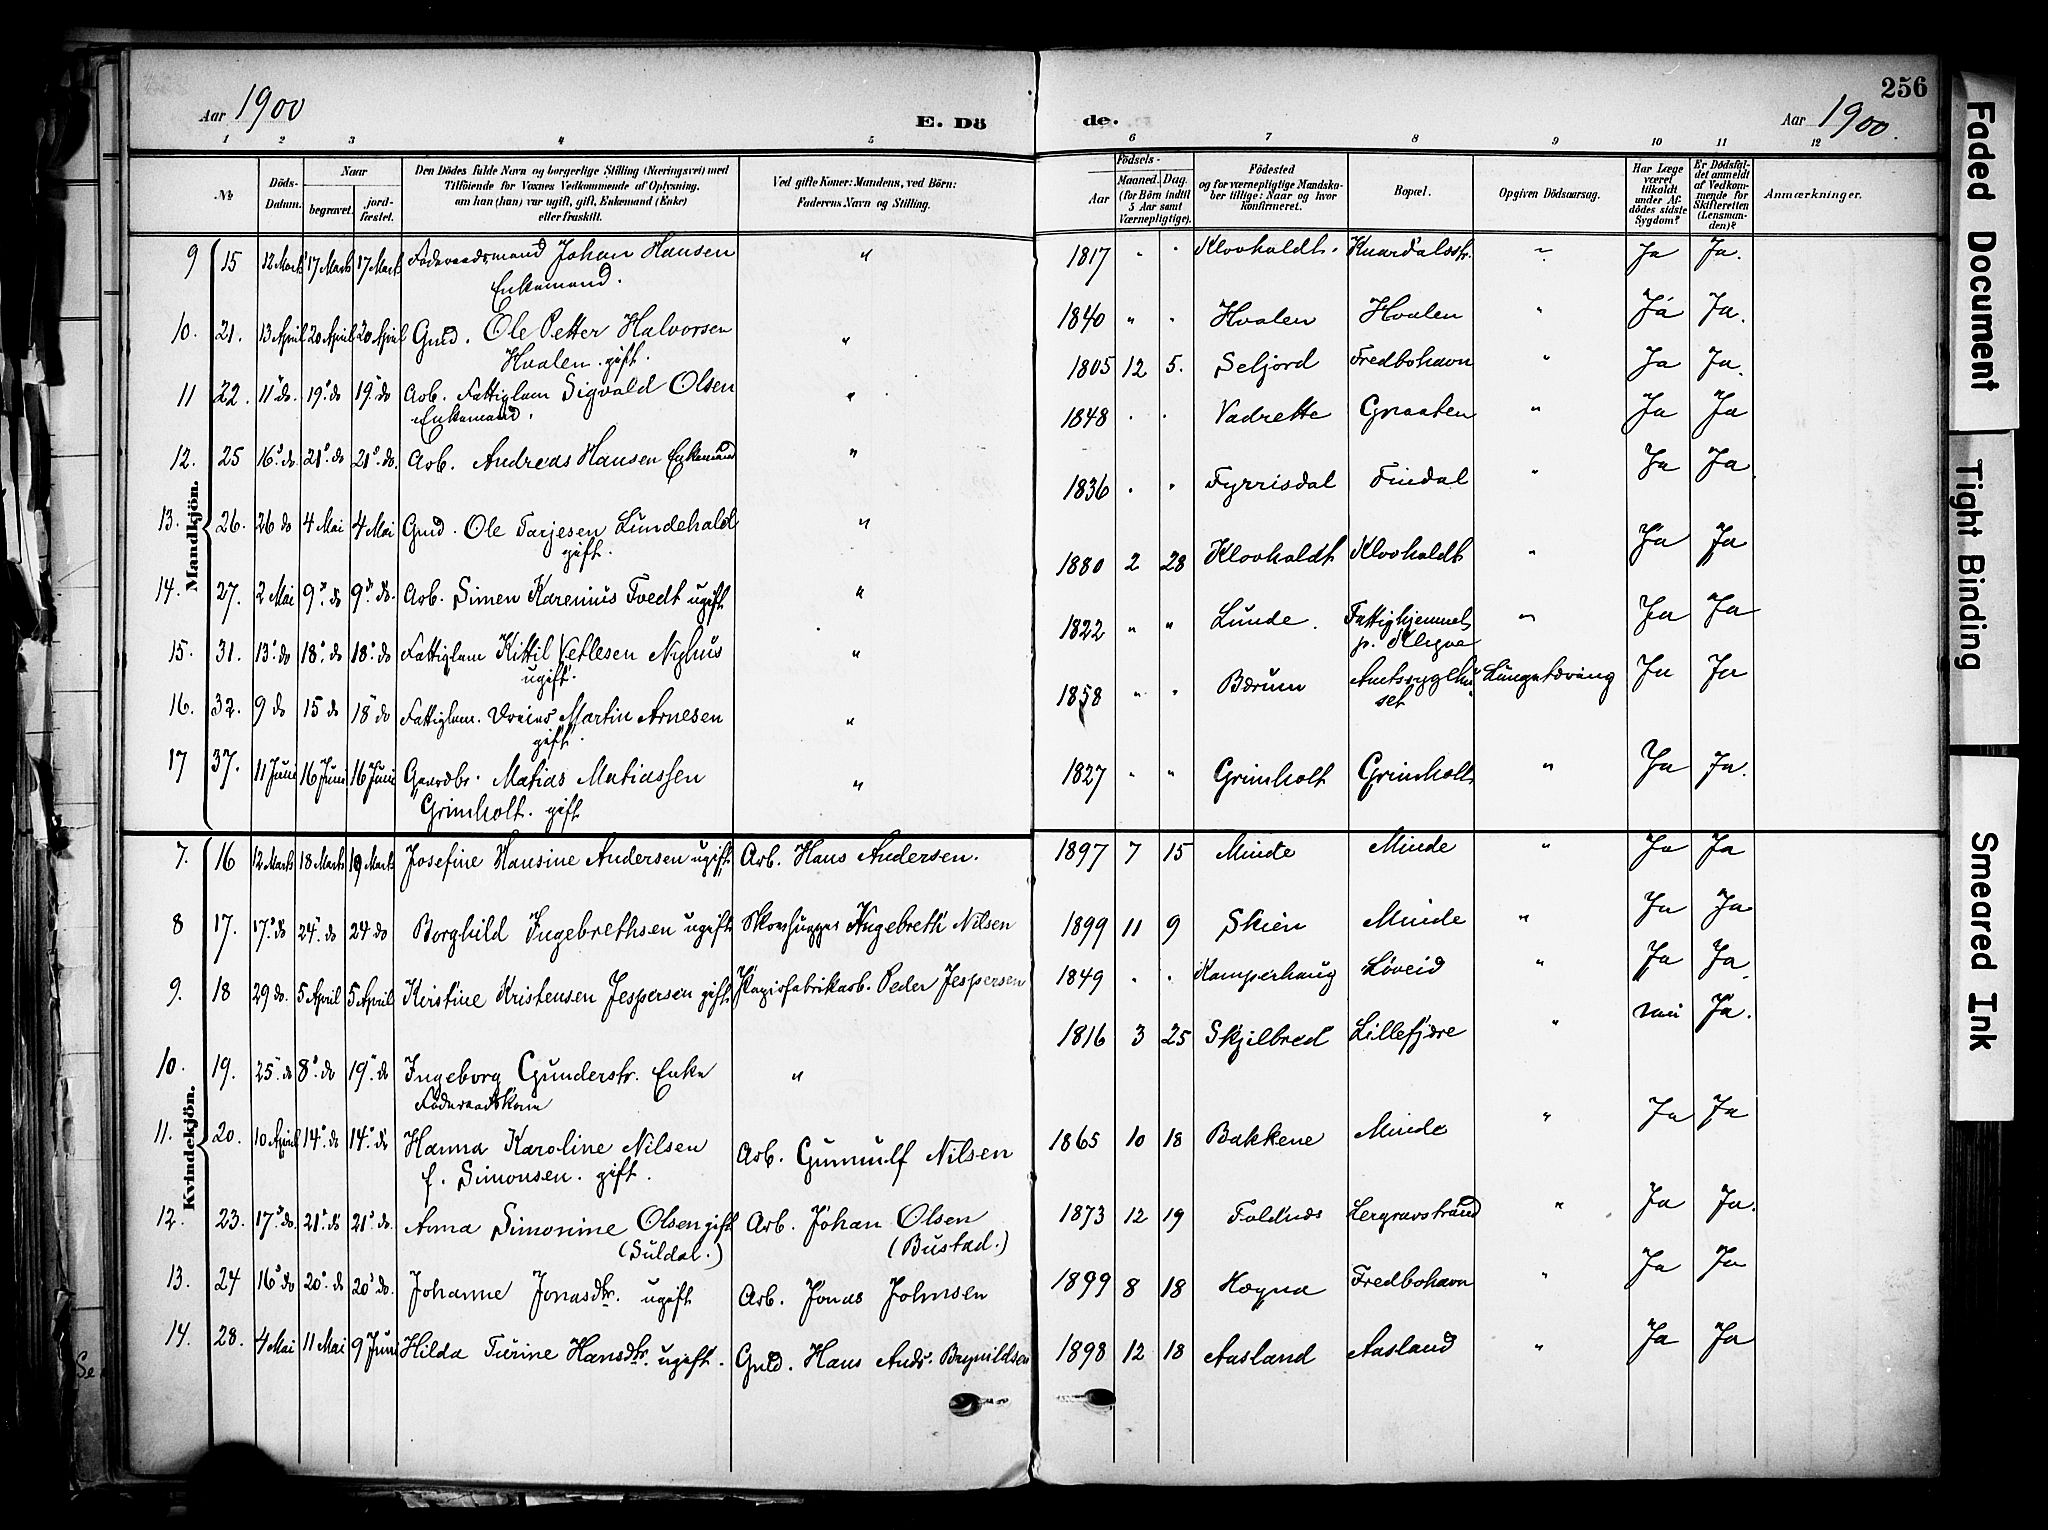 256
Aar 1900
E. Dö de.
Aar 1900.
1 2 3 4 5 6 7 8 9 10 11 12
№
Döds-Datum.
Naar
begravet.
jord-fæstet.
Den Dödes fulde Navn og borgerlige Stilling (Næringsvei) med
Tilföiende for Voxnes Vedkommende af Oplysning,
om han (hun) var ugift, gift, Enkemand (Enke)
eller fraskilt.
Ved gifte Koner: Mandens, ved Börn:
Faderens Navn og Stilling.
Födsels-
Aar
Maaned. Dag.
(for Börn indtil
5 Aar samt
Værnepligtige).
Födested
og for værnepligtige Mandska-
ber tillige: Naar og hvor
konfirmeret.
Bopæl.
Opgiven Dödsaarsag.
Har Læge
været
tilkaldt
under Af-
dödes sidste
Sygdom?
Er Dödsfal-
det anmeldt
af Vedkom-
mende for
Skifteretten
(Lensman-
den)?
Anmærkninger.
Mandkjön.
9 15 12 Marts 17 Marts 17 Marts Föderaadsmand Johan Hansen " 1817 " " Klovholdt. Knardalsstr. " Ja Ja.
Enkemand.
10. 21. 13 April 20 April 20 April Gmd. Ole Petter Halvorsen " 1840 " " Hvalen Hvalen " Ja Ja.
Hvalen. gift.
11 22. 11 do. 19. do 19. do Arb. Fattiglem Sigvald Olsen " 1805 12 5. Seljord Fredbohavn " Ja Ja.
Enkemand.
12. 25 16. do. 21. do 21. do. Arb. Andreas Hansen Enkemand " 1848 " " Vadrette Graaten " Ja Ja
13. 26. 26 do 4 Mai 4 Mai Gmd. Ole Tarjesen Lundehald " 1836 " " Fyrrisdal Findal " Ja Ja
gift.
14. 27. 2 Mai 9. do 9. do. Arb. Simen Karenius Tvedt ugift " 1880 2 28 Klovholdt Klovholdt " Ja Ja
15. 31. 13. do 18. do 18. do Fattiglem Kittil Vetlesen Nyhus " 1822 " " Lunde. Fattighjemmet " Ja Ja
ugift. p. Klyve
16. 32. 9 do 15 do 18 do Fattiglem. Martin Arnesen " 1858 " " Bærum Amtssygehu- Lungetæring Ja Ja
gift. set
17 37. 11 Juni 16 Juni 16 Juni Gaardbr. Matias Matiassen " 1827 " " Grimholt Grimholt " Ja Ja.
Grimholt. gift
Kvindekjön.
7. 16 12 Marts 18 Marts 19 Marts Josefine Hansine Andersen ugift Arb. Hans Andersen. 1897 7 15 Minde Minde " Ja Ja
8 17. 17. do 24. do 24 do Borghild Ingebrethsen ugift Skovhugger Ingebreth Nilsen 1899 11 9 Skien Minde " Ja Ja
9. 18 29 do. 5 April 5 April Kirstine Kristensen Jespersen gift Papirfabrikarb. Peder Jespersen 1849 " " Kamperhaug Løveid " Ja Ja.
10. 19. 25. do 8. do 19. do Ingeborg Gunderstr. Enke " 1816 3 25 Skjilbred Lillefjære " nei Ja.
Föderaadskone
11. 20. 10 April 14. do 14. do Hanna Karoline Nilsen Arb. Gunnulf Nilsen 1865 10 18 Bakkene Minde " Ja Ja
f. Simonsen. gift.
12. 23. 17. do. 21. do 21. do. Anna Simonine Olsen gift Arb. Johan Olsen 1873 12 19 Foldnes Lergravstrand " Ja Ja.
(Suldal.) (Bustad.)
13. 24 16. do 20. do 20. do. Johanne Jonasdtr. ugift Arb. Jonas Johnsen 1899 8 18 Høgna Fredbohavn " Ja Ja
14. 28. 4 Mai 11 Mai 9 Juni Hilda Turine Hansdtr. ugift. Gmd. Hans Andr. Brynildsen 1898 12 18 Aasland Aasland " Ja Ja
Se
Faded Document
Tight Binding
Smeared Ink